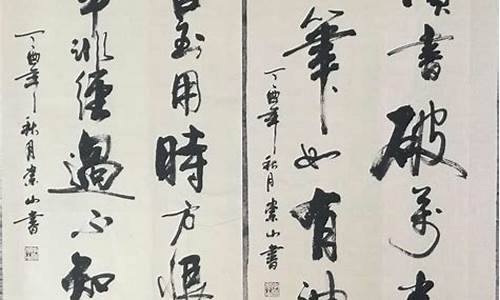 讀書破萬卷
筆如有神
丁酉年秋月崇山書
到用時方恨
事非經過不知
丁酉年秋月崇山書